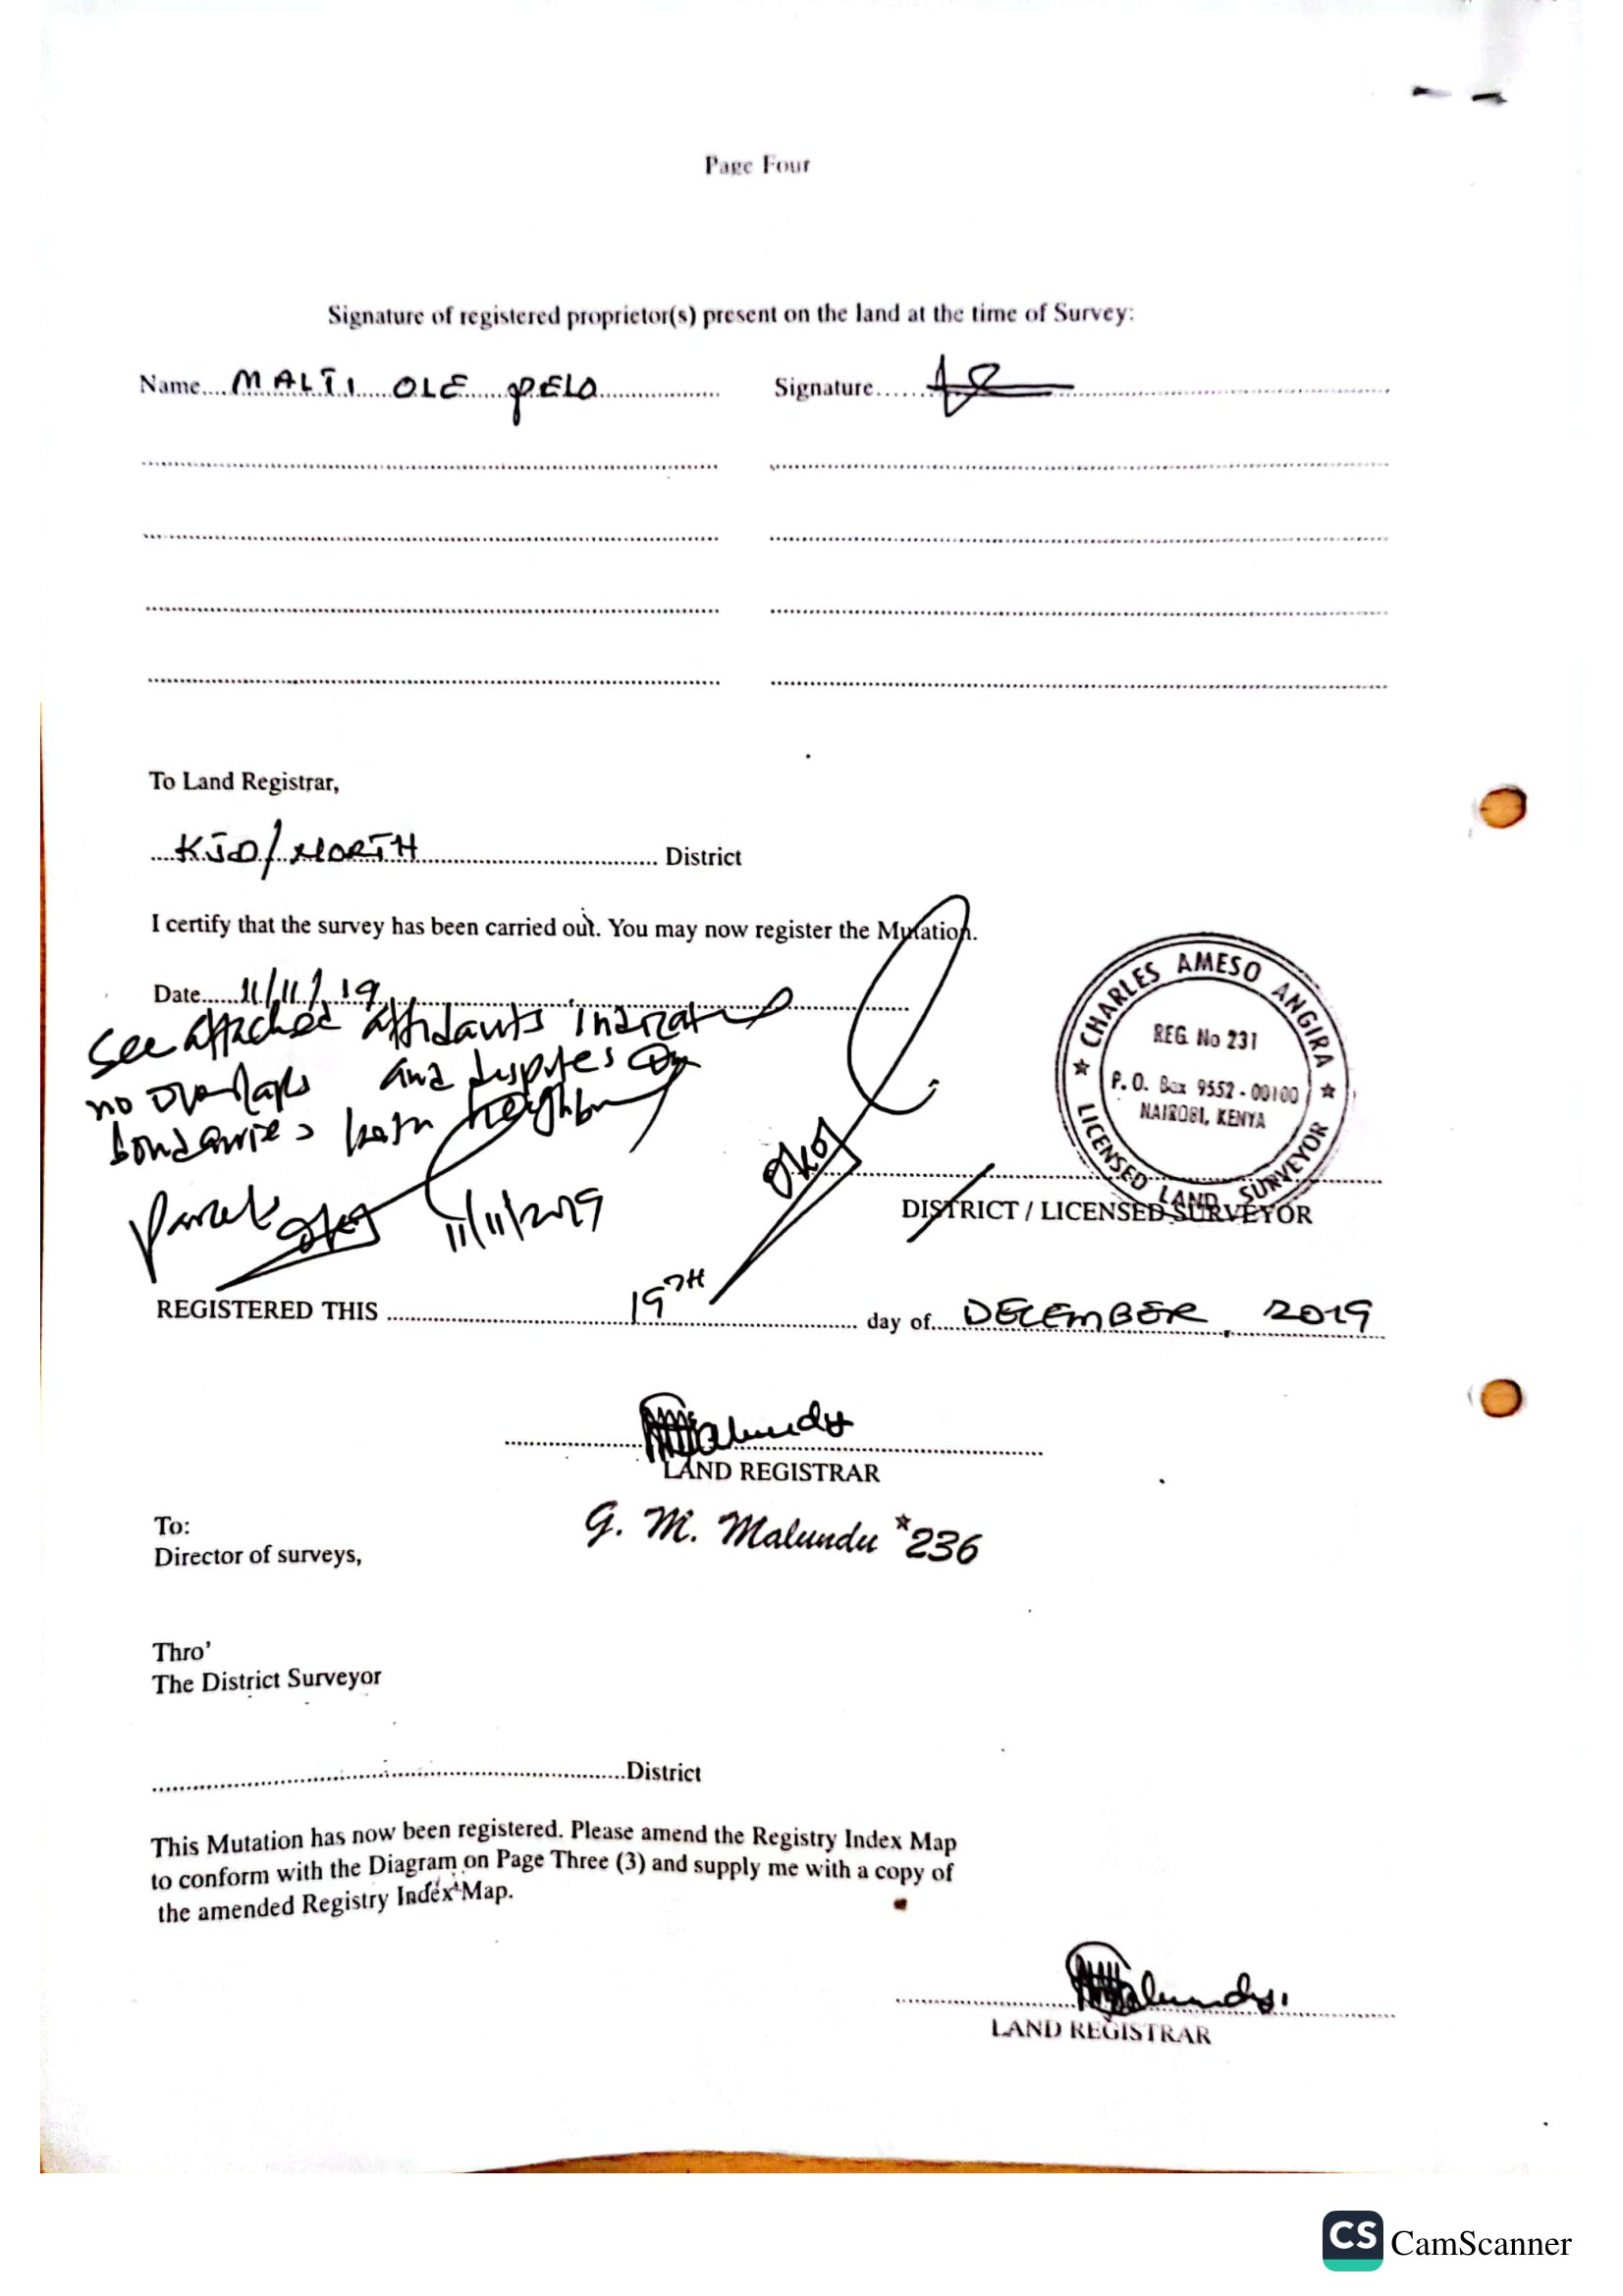 Page Four
Signature of registered proprietor(s) present on the land at the time of Survey:
Name.... MALTI OLE PELO Signature......
To Land Registrar,
KJD/NORTH District
I certify that the survey has been carried out. You may now register the Mutation.
Date...... 11/11/19
See attached affidavits indicating
no overlaps and disputes on
boundaries both neighboring
parcels
11/11/2019
CHARLES AMESO ANGIRA
REG. No 231
P. O. Box 9552 - 00100
NAIROBI, KENYA
LICENSED LAND SURVEYOR
DISTRICT / LICENSED SURVEYOR
REGISTERED THIS 19TH day of DECEMBER, 2019
LAND REGISTRAR
G. M. Malundu *236
To:
Director of surveys,
Thro'
The District Surveyor
District
This Mutation has now been registered. Please amend the Registry Index Map
to conform with the Diagram on Page Three (3) and supply me with a copy of
the amended Registry Index Map.
LAND REGISTRAR
CS CamScanner